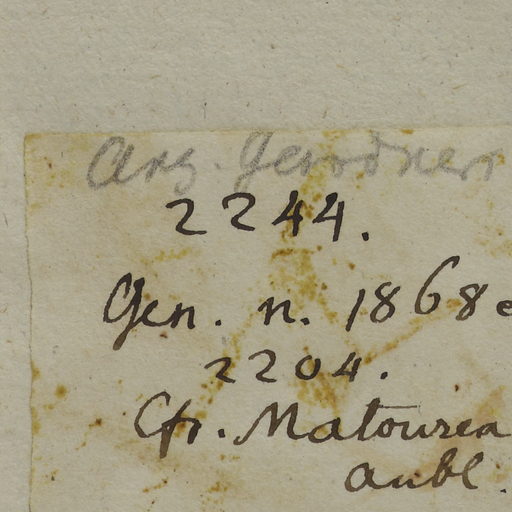 Ang. Goerdneri
2244.
Gen. n. 1868 e
2204.
Cfr. Matourea
Aubl.